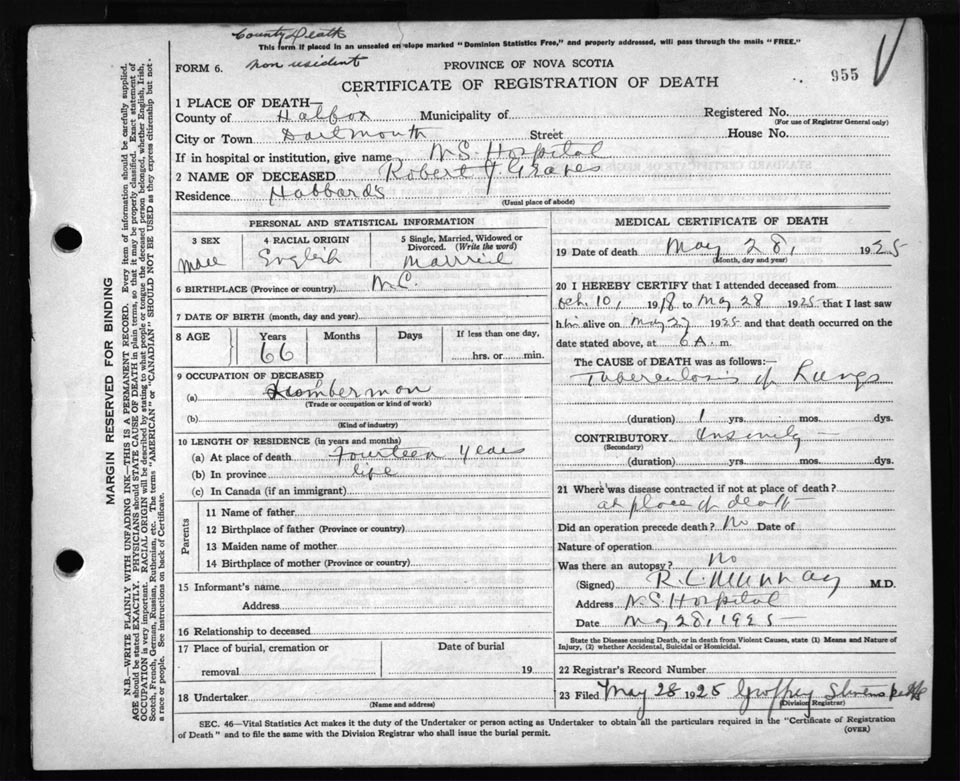 County Death
This form if placed in an unsealed envelope marked "Dominion Statistics Free," and properly addressed, will pass through the mails "FREE."
FORM 6.
non resident
PROVINCE OF NOVA SCOTIA
955
CERTIFICATE OF REGISTRATION OF DEATH
1 PLACE OF DEATH—
County of Halifax Municipality of Registered No.
(For use of Registrar General only)
City or Town Dartmouth Street House No.
If in hospital or institution, give name N.S. Hospital
2 NAME OF DECEASED Robert J Graves
Residence Hubbards
(Usual place of abode)
PERSONAL AND STATISTICAL INFORMATION
3 SEX
Male
4 RACIAL ORIGIN
English
5 Single, Married, Widowed or
Divorced. (Write the word)
Married
6 BIRTHPLACE (Province or country) N.S.
7 DATE OF BIRTH (month, day and year)
8 AGE Years Months Days If less than one day,
66 hrs. or min.
9 OCCUPATION OF DECEASED
(a) Lumberman
(Trade or occupation or kind of work)
(b)
(Kind of industry)
10 LENGTH OF RESIDENCE (in years and months)
(a) At place of death Fourteen years
(b) In province life
(c) In Canada (if an immigrant)
Parents
11 Name of father
12 Birthplace of father (Province or country)
13 Maiden name of mother
14 Birthplace of mother (Province or country)
15 Informant's name
Address
16 Relationship to deceased
17 Place of burial, cremation or Date of burial
removal 19
18 Undertaker
(Name and address)
MEDICAL CERTIFICATE OF DEATH
19 Date of death May 28, 1925
(Month, day and year)
20 I HEREBY CERTIFY that I attended deceased from
Oct. 10, 1918 to May 28 1925 that I last saw
him alive on May 27 1925 and that death occurred on the
date stated above, at 6 A. m.
The CAUSE of DEATH was as follows:—
Tuberculosis of Lungs
(duration) 1 yrs. mos. dys.
CONTRIBUTORY Insanity
(Secondary)
(duration) yrs. mos. dys.
21 Where was disease contracted if not at place of death?
at place of death
Did an operation precede death? No Date of
Nature of operation
Was there an autopsy? No
(Signed) R.C. Murray M.D.
Address N.S. Hospital
Date May 28, 1925
State the Disease causing Death, or in death from Violent Causes, state (1) Means and Nature of
Injury, (2) whether Accidental, Suicidal or Homicidal.
22 Registrar's Record Number
23 Filed May 28 1925 Geoffrey Stevens
(Division Registrar)
SEC. 46—Vital Statistics Act makes it the duty of the Undertaker or person acting as Undertaker to obtain all the particulars required in the "Certificate of Registration
of Death" and to file the same with the Division Registrar who shall issue the burial permit.
(OVER)
MARGIN RESERVED FOR BINDING
N.B.—WRITE PLAINLY WITH UNFADING INK—THIS IS A PERMANENT RECORD. Every item of information should be carefully supplied.
AGE should be stated EXACTLY. PHYSICIANS should STATE CAUSE OF DEATH in plain terms, so that it may be properly classified. Exact statement of
OCCUPATION is very important. RACIAL ORIGIN will be described by stating to what people or tongue the deceased person belonged, whether English, Irish,
Scotch, French, German, Russian, Ruthenian, etc. The terms "AMERICAN" or "CANADIAN" SHOULD NOT BE USED as they express citizenship but not
a race or people. See instructions on back of Certificate.